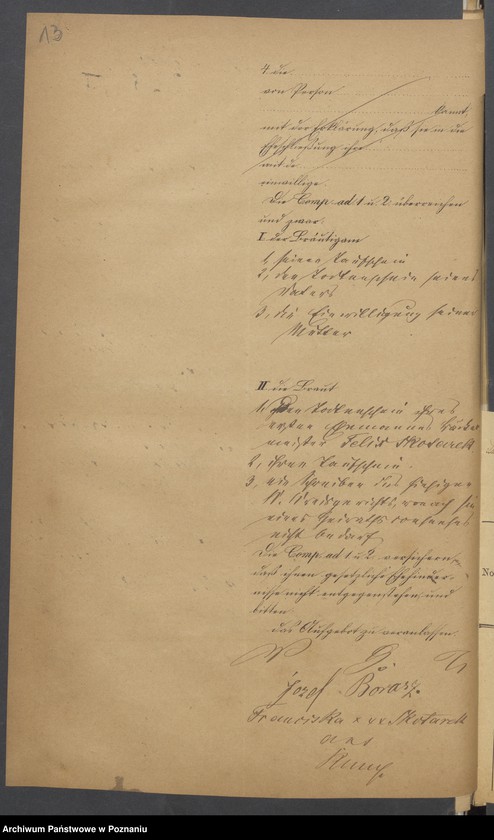 13
4 die
von Person
bannt,
mit der Erklärung, daß sie in die
Eheschließung ihre
mit de
einwillige.
Die Comp. ad 1 u. 2 überreichen
und zwar:
I der Bräutigam
1, seinen Taufschein
2, den Todtenschein seines
Vaters
3, die Einwilligung seiner
Mutter
II die Braut
1, Den Todtenschein ihres
ersten Ehemannes
meister Felix Skotarek
2, ihren Taufschein
3, ein Schreiben des hiesigen
K. Kreisgerichts, wonach sie
eines Heirathsconsenses
nicht bedarf.
Die Comp. ad 1 u. 2 versichern,
daß ihnen gesetzliche Ehehinder-
nisse nicht entgegenstehen, und
bitten
das Aufgebot zu veranlassen.
Jozef
Franciska x Skotarek
No
Archiwum Państwowe w Poznaniu